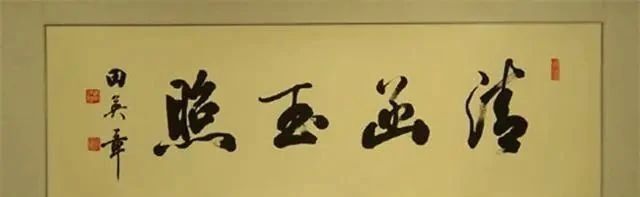 清函玉照
田英章